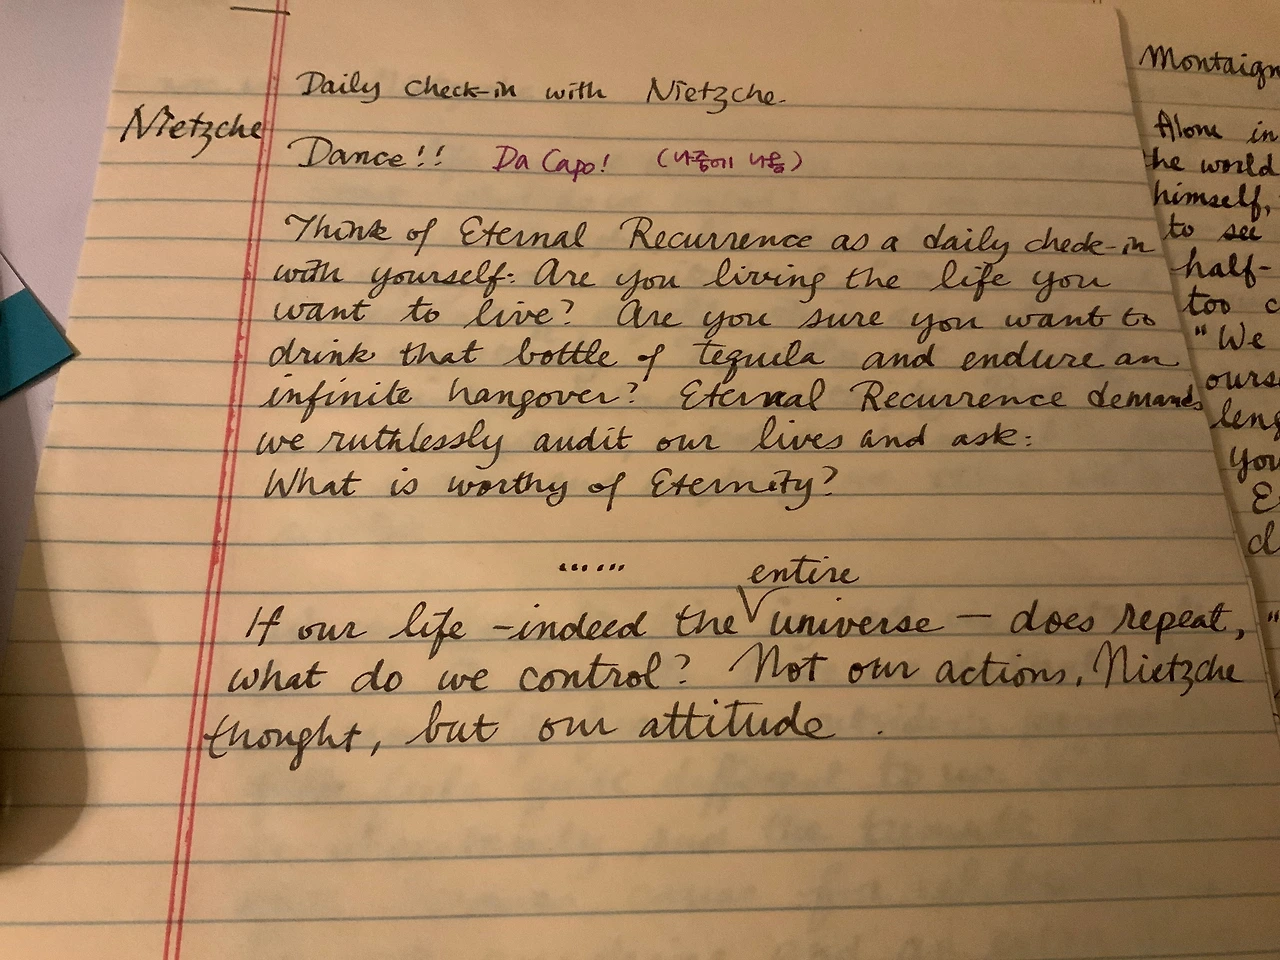 Daily check-in with Nietzche.
Nietzche
Dance!! Da Capo! (나중에 나옴)
Think of Eternal Recurrence as a daily check-in
with yourself: Are you living the life you
want to live? Are you sure you want to
drink that bottle of tequila and endure an
infinite hangover? Eternal Recurrence demands
we ruthlessly audit our lives and ask:
What is worthy of Eternity?
......
entire
If our life -indeed the universe - does repeat,
what do we control? Not our actions, Nietzche
thought, but our attitude.
Montaign
Alone in
the world
himself,
to see
half-
too c
"We
ours
leng
you
E
d
"